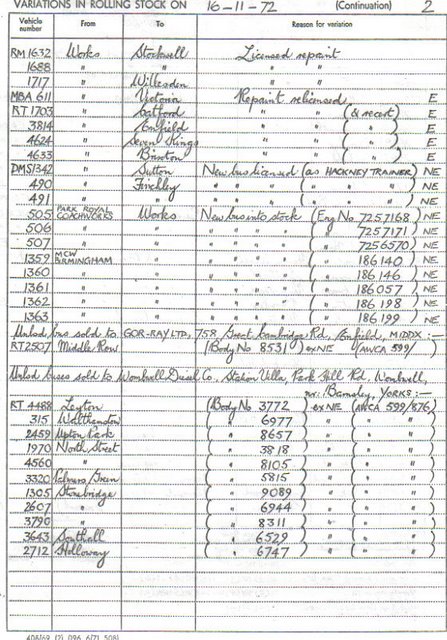 VARIATIONS IN ROLLING STOCK ON 16-11-72 (Continuation) 2
Vehicle number From To Reason for variation
RM 1632 Works Stockwell Licensed repaint
1688 " " " "
1717 " Willesden " "
MBA 611 " Victoria Repaint relicensed E
RT 1703 " Catford " " (& recert) E
3814 " Enfield " " ( " ) E
4624 " Seven Kings " " ( " ) E
4633 " Brixton " " ( " ) E
DMS1342 " Sutton New bus licensed (as HACKNEY TRAINER) NE
490 " Finchley " " " " " " NE
491 " " " " " " " " NE
505 PARK ROYAL COACHWORKS Works New bus into stock (Eng No 7257168) NE
506 " " " " " " ( " 7257171) NE
507 " " " " " " ( " 7256570) NE
1359 MCW BIRMINGHAM " " " " " ( " 186140) NE
1360 " " " " " " ( " 186146) NE
1361 " " " " " " ( " 186057) NE
1362 " " " " " " ( " 186198) NE
1363 " " " " " " ( " 186199) NE
Unlsd. bus sold to GOR-RAY LTD, 758 Great Cambridge Rd, Enfield, MIDDX :-
RT2507 Middle Row (Body No 8531) ex NE (AWCA 599/ )
Unlsd buses sold to Wombwell Diesel Co, Station Villa, Park Hill Rd, Wombwell,
nr. Barnsley, YORKS :-
RT 4488 Leyton (Body No 3772) ex NE (AWCA 599/876)
315 Walthamstow ( " 6977) " ( " " )
2459 Upton Park ( " 8657) " ( " " )
1970 North Street ( " 3818) " ( " " )
4560 " ( " 8105) " ( " " )
3320 Palmers Green ( " 5815) " ( " " )
1305 Stonebridge ( " 9089) " ( " " )
2607 " ( " 6944) " ( " " )
3790 " ( " 8311) " ( " " )
3643 Southall ( " 6529) " ( " " )
2712 Holloway ( " 6747) " ( " " )